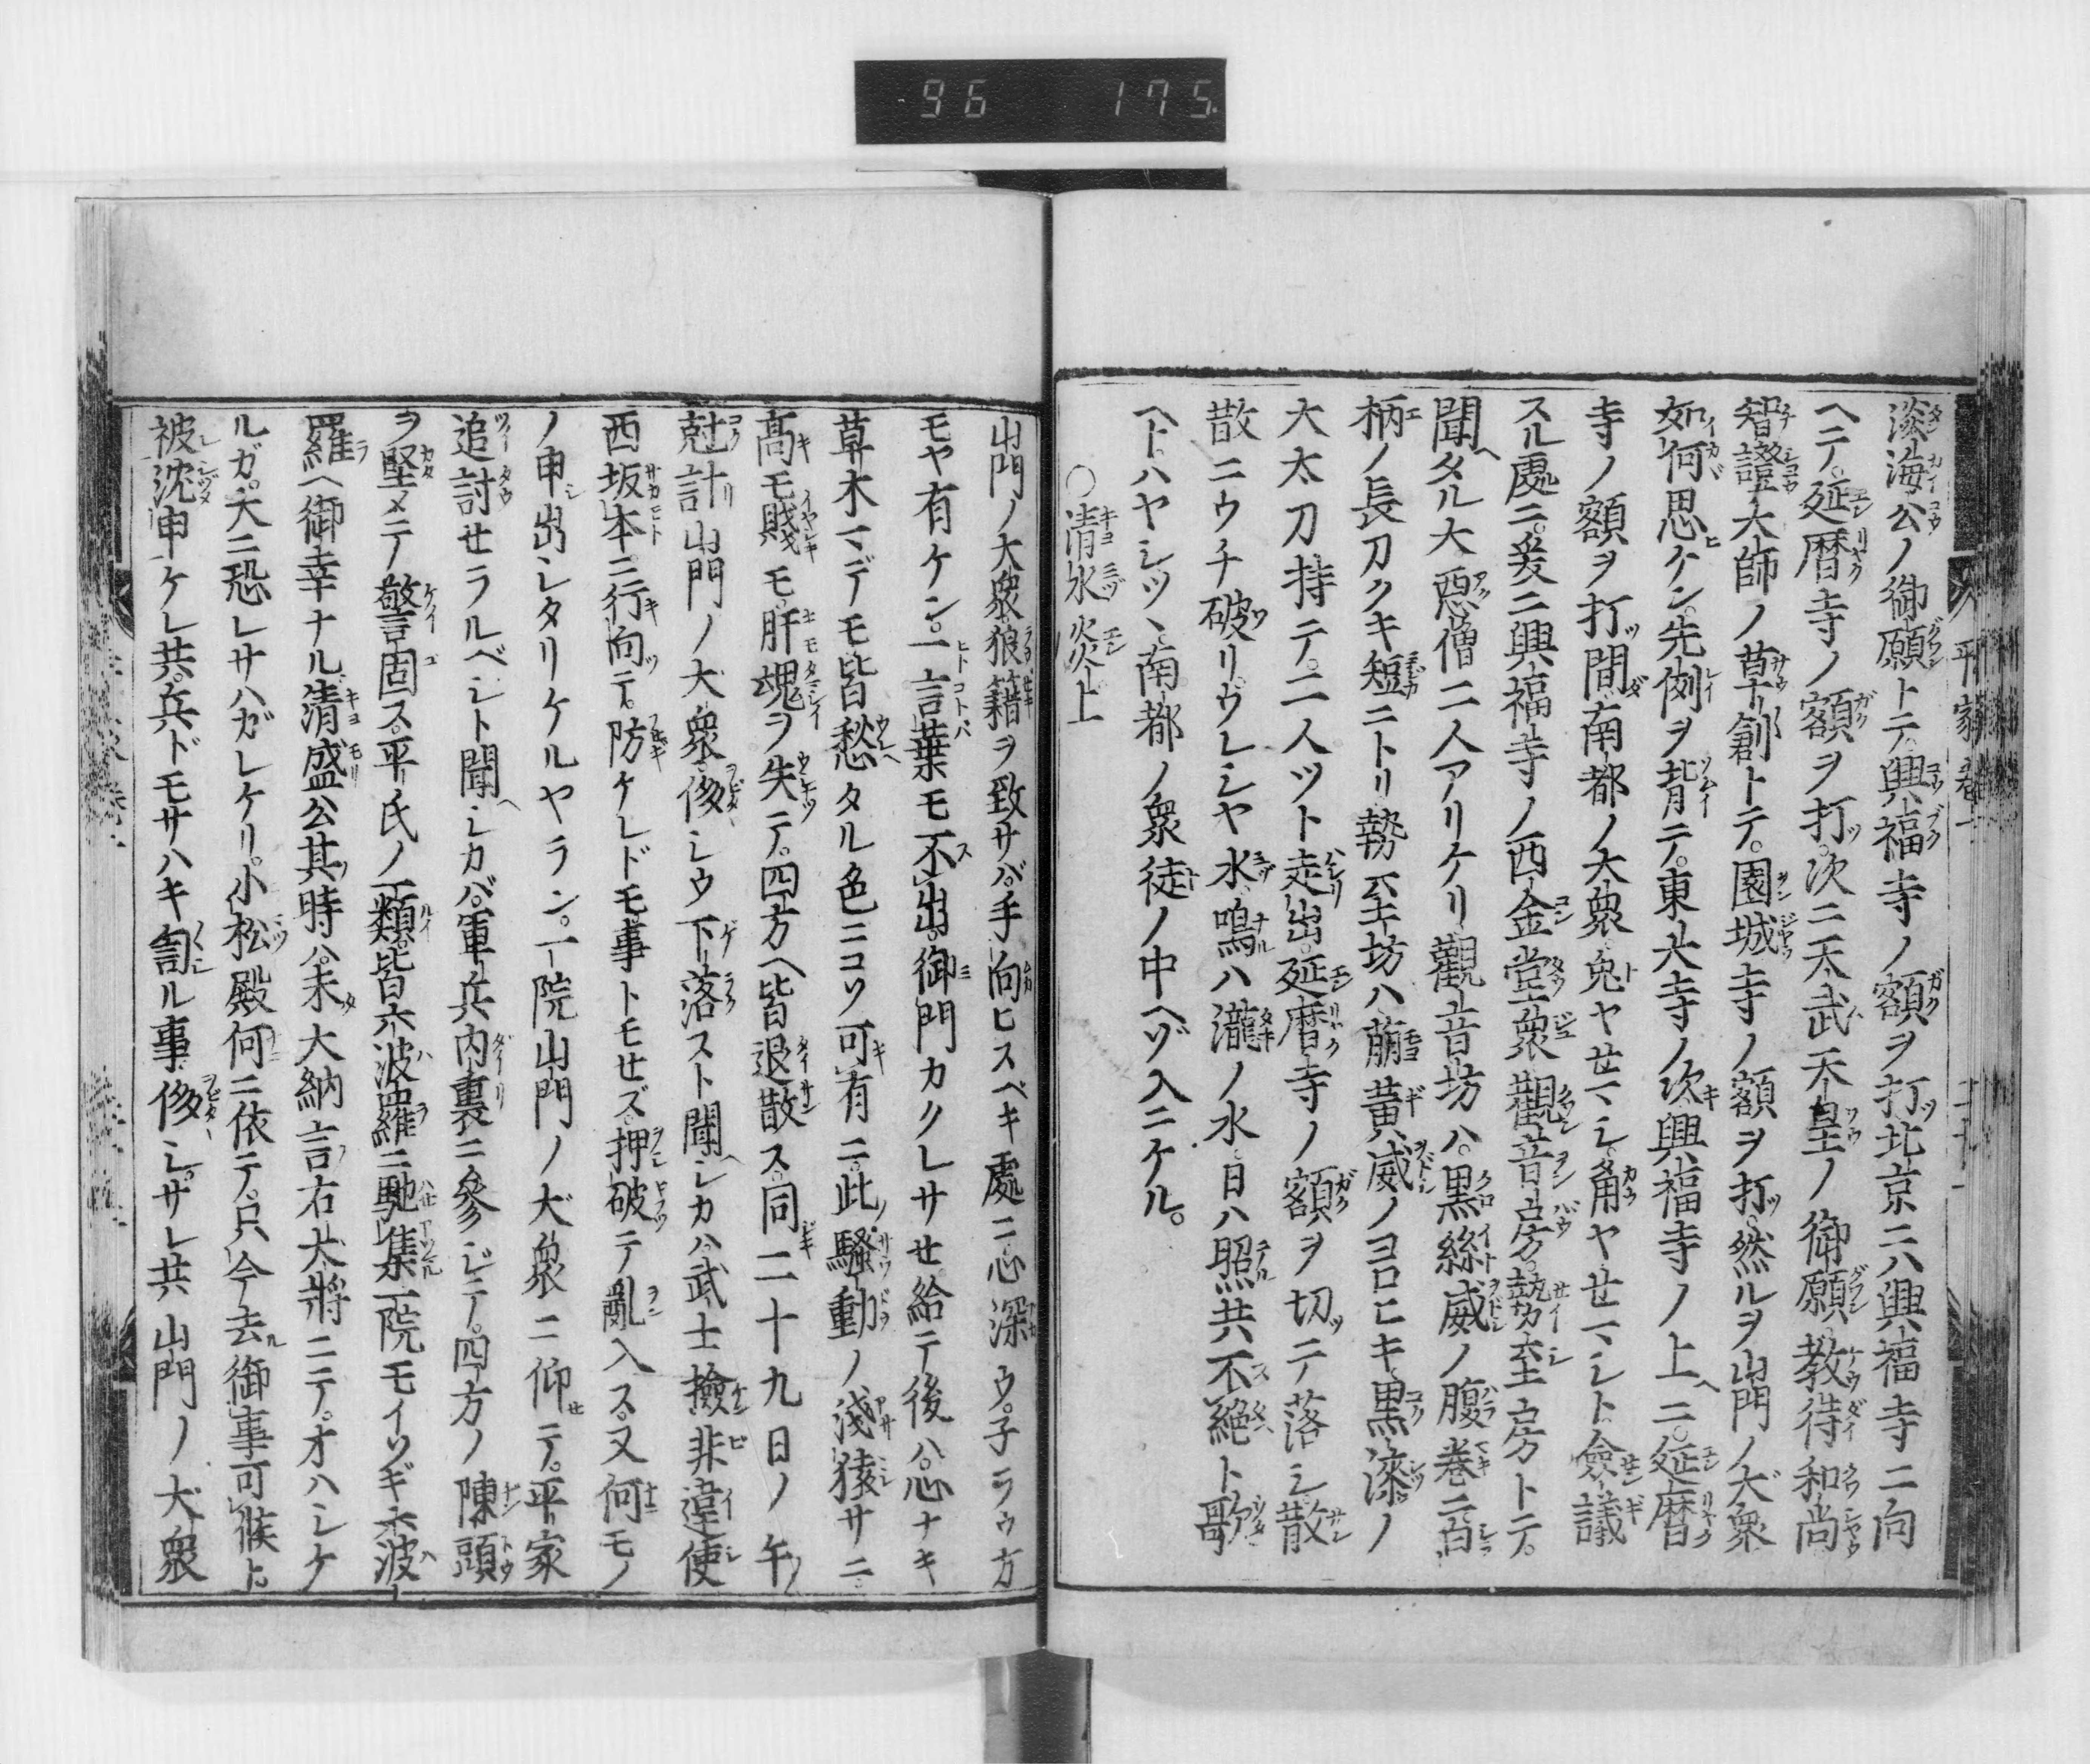 96 175
淡海公ノ御願トテ興福寺ノ額ヲ打北京ニハ興福寺ニ向
ヘテ延暦寺ノ額ヲ打次ニ天武天皇ノ御願教待和尚
智證大師ノ草創トテ園城寺ノ額ヲ打然ルヲ山門ノ大衆
如何思ケン先例ヲ背テ東大寺ノ次興福寺ノ上ニ延暦
寺ノ額ヲ打間南都ノ大衆兎ヤセマシ角ヤセマシト僉議
スル處ニ爰ニ興福寺ノ西金堂衆觀音房勢至房トテ
聞タル大惡僧二人アリケリ觀音坊ハ黒絲威ノ腹巻ニ白
柄ノ長刀クキ短ニトリ勢至坊ハ萠黄威ノヨロヒキ黒漆ノ
大太刀持テ二人ツト走出延暦寺ノ額ヲ切テ落シ散
散ニウチ破リウレシヤ水鳴ハ瀧ノ水日ハ照共不絶ト歌
ヘトハヤシツヽ南都ノ衆徒ノ中ヘゾ入ニケル
○清水炎上
平家巻一
山門ノ大衆狼籍ヲ致サバ手向ヒスベキ處ニ心深ウ子ラウ方
モヤ有ケン一言葉モ不出御門カクレサセ給テ後ハ心ナキ
草木マデモ皆愁タル色ニコソ可有ニ此騒動ノ淺猿サニ
高モ賤モ肝魂ヲ失テ四方ヘ皆退散ス同二十九日ノ午
尅計山門ノ大衆侈シウ下落スト聞シカハ武士撿非違使
西坂本ニ行向テ防ケレドモ事トモセズ押破テ亂入ス又何モノ
ノ申出シタリケルヤラン一院山門ノ大衆ニ仰テ平家
追討セラルベシト聞シカバ軍兵内裏ニ參ジテ四方ノ陳頭
ヲ堅メテ警固ス平氏ノ一類皆六波羅ニ馳集一院モイソギ六波
羅ヘ御幸ナル清盛公其時ハ未大納言右大將ニテオハシケ
ルガ大ニ恐レサハガレケリ小松殿何ニ依テ只今去御事可候ト
被沈申ケレ共兵ドモサハキ訇ル事侈シサレ共山門ノ大衆